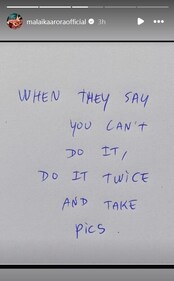 malaikaaroraofficial 3h
WHEN THEY SAY
YOU CAN'T
DO IT,
DO IT TWICE
AND TAKE
PICS.